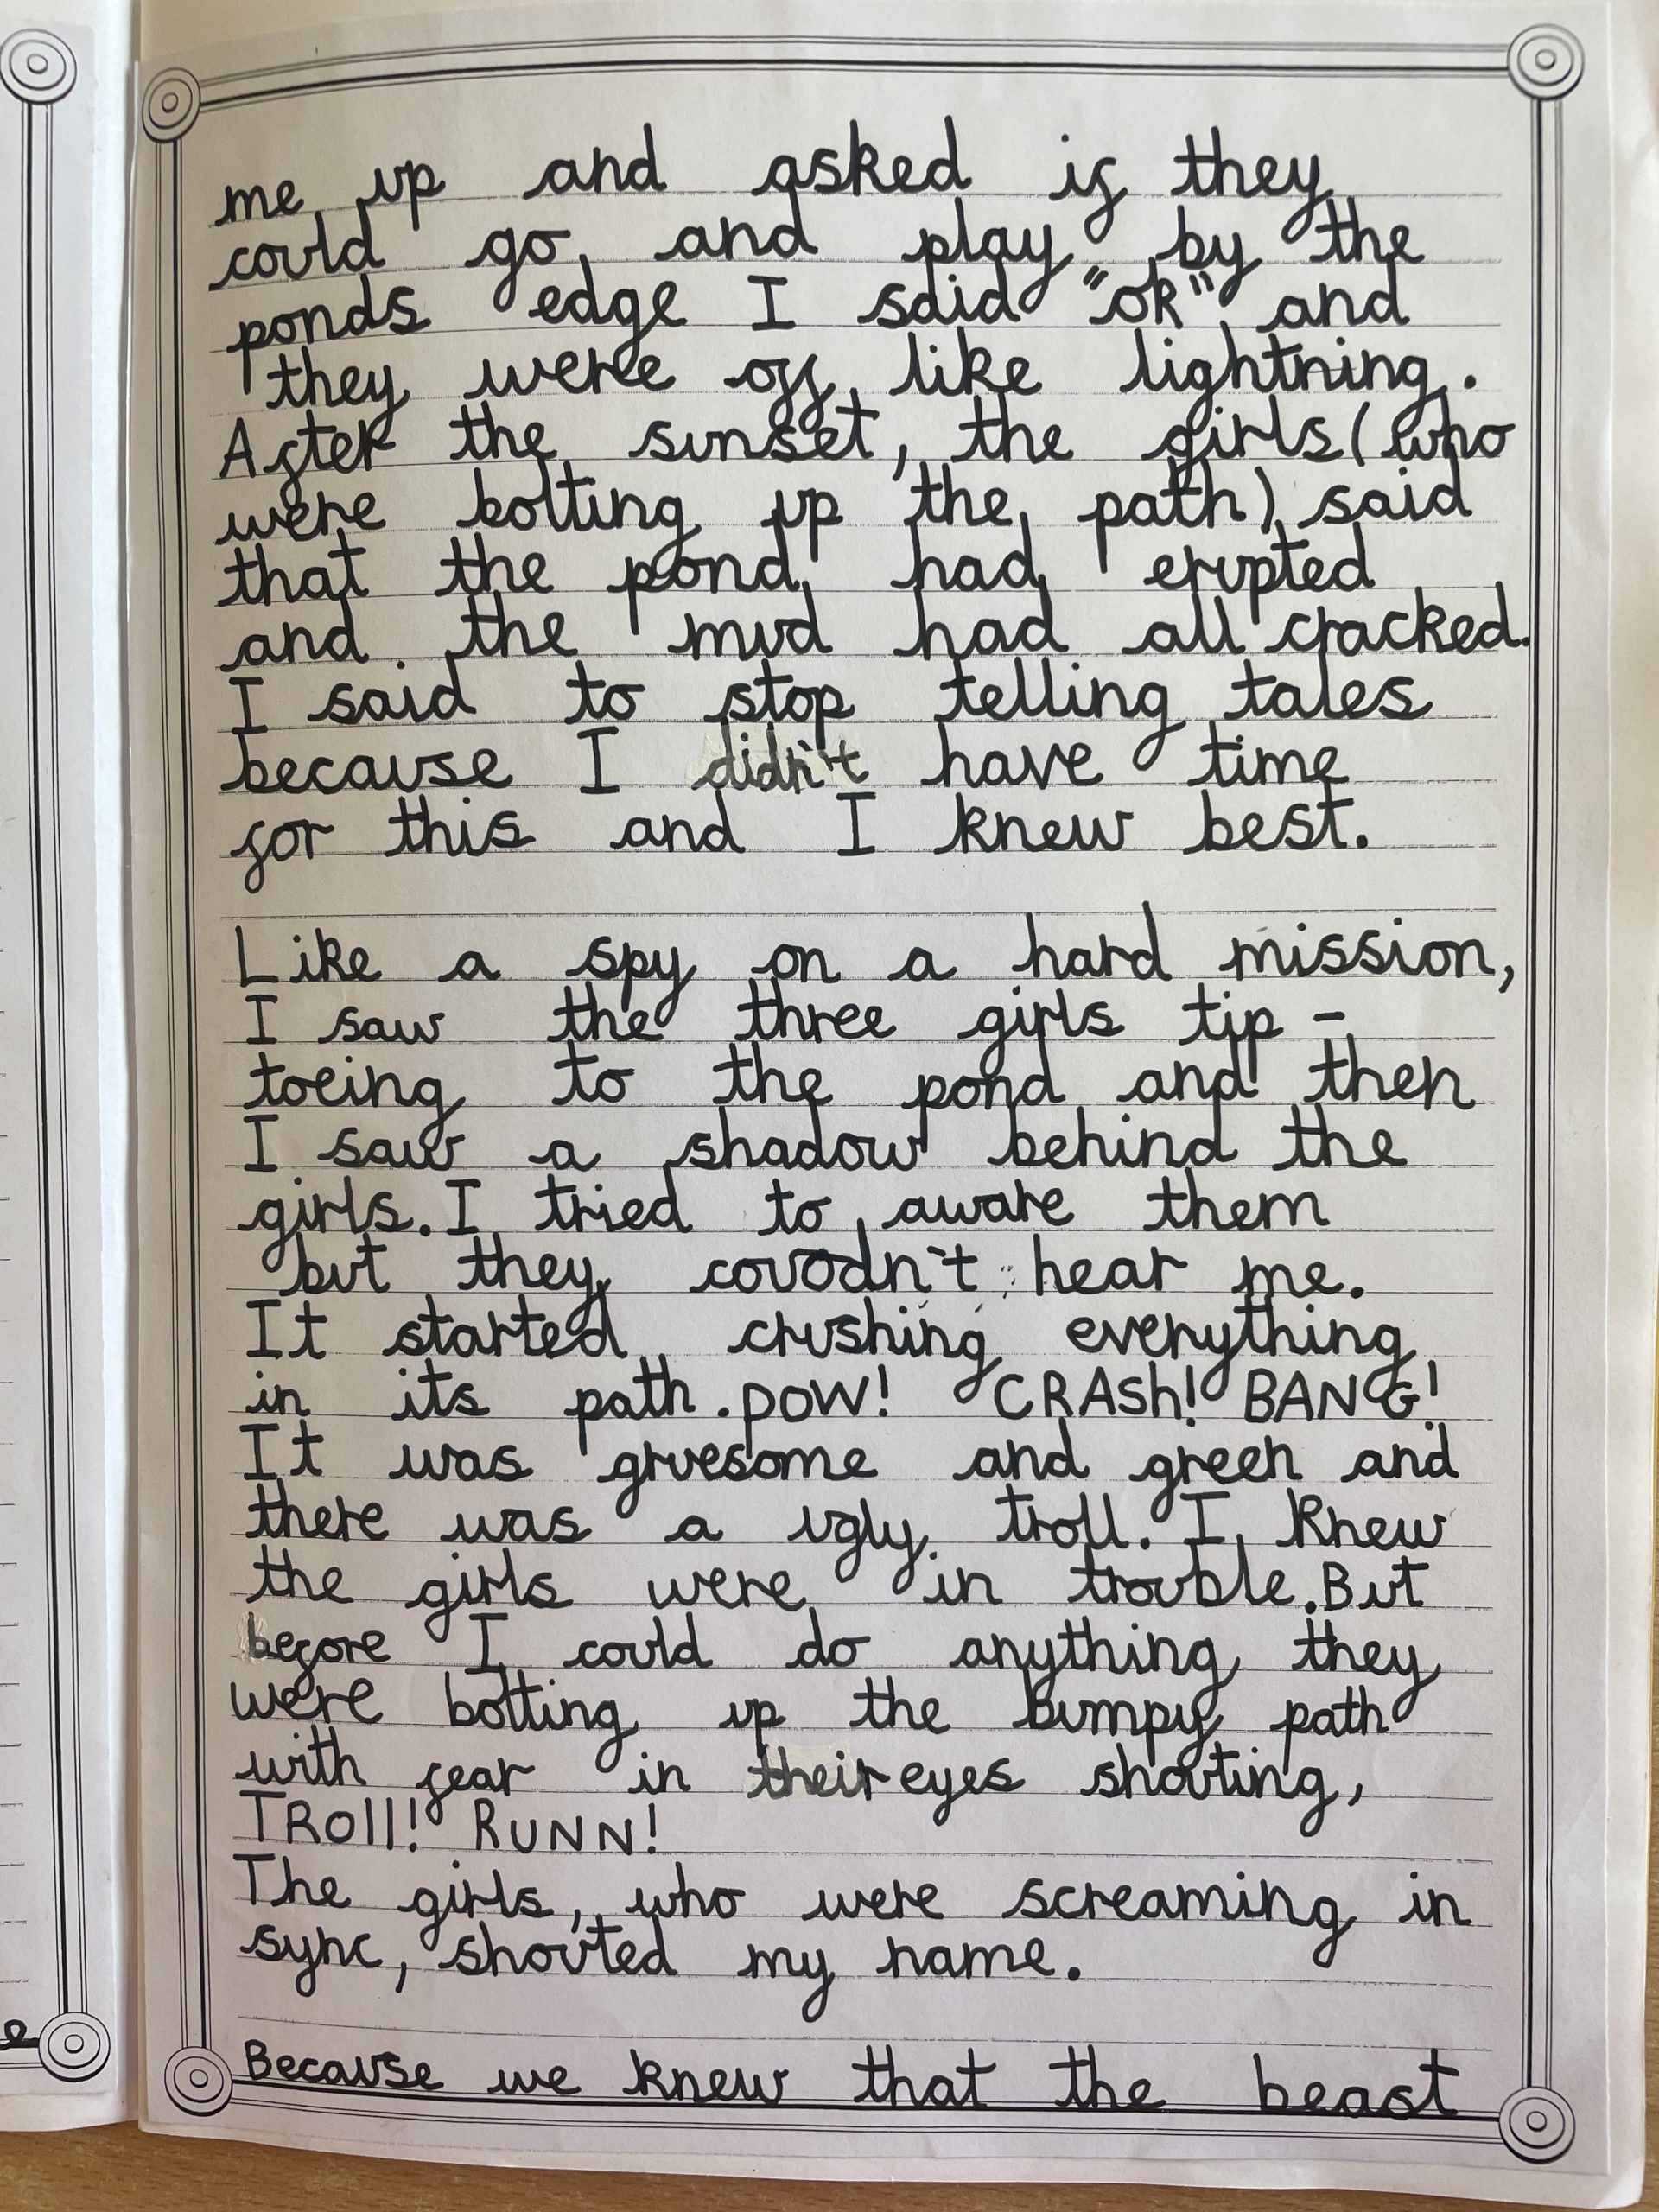 me up and asked if they
could go and play by the
ponds edge I said "ok" and
they were off like lightning.
After the sunset, the girls (who
were bolting up the path) said
that the pond had erupted
and the mud had all cracked.
I said to stop telling tales
because I didn't have time
for this and I knew best.
Like a spy on a hard mission,
I saw the three girls tip-
toeing to the pond and then
I saw a shadow behind the
girls. I tried to aware them
but they couodn't hear me.
It started crushing everything
in its path. POW! CRASh! BANG!
It was gruesome and green and
there was a ugly troll. I knew
the girls were in trouble. But
before I could do anything they
were bolting up the bumpy path
with fear in their eyes shouting,
TROll! RUNN!
The girls, who were screaming in
sync, shouted my name.
Because we knew that the beast
e